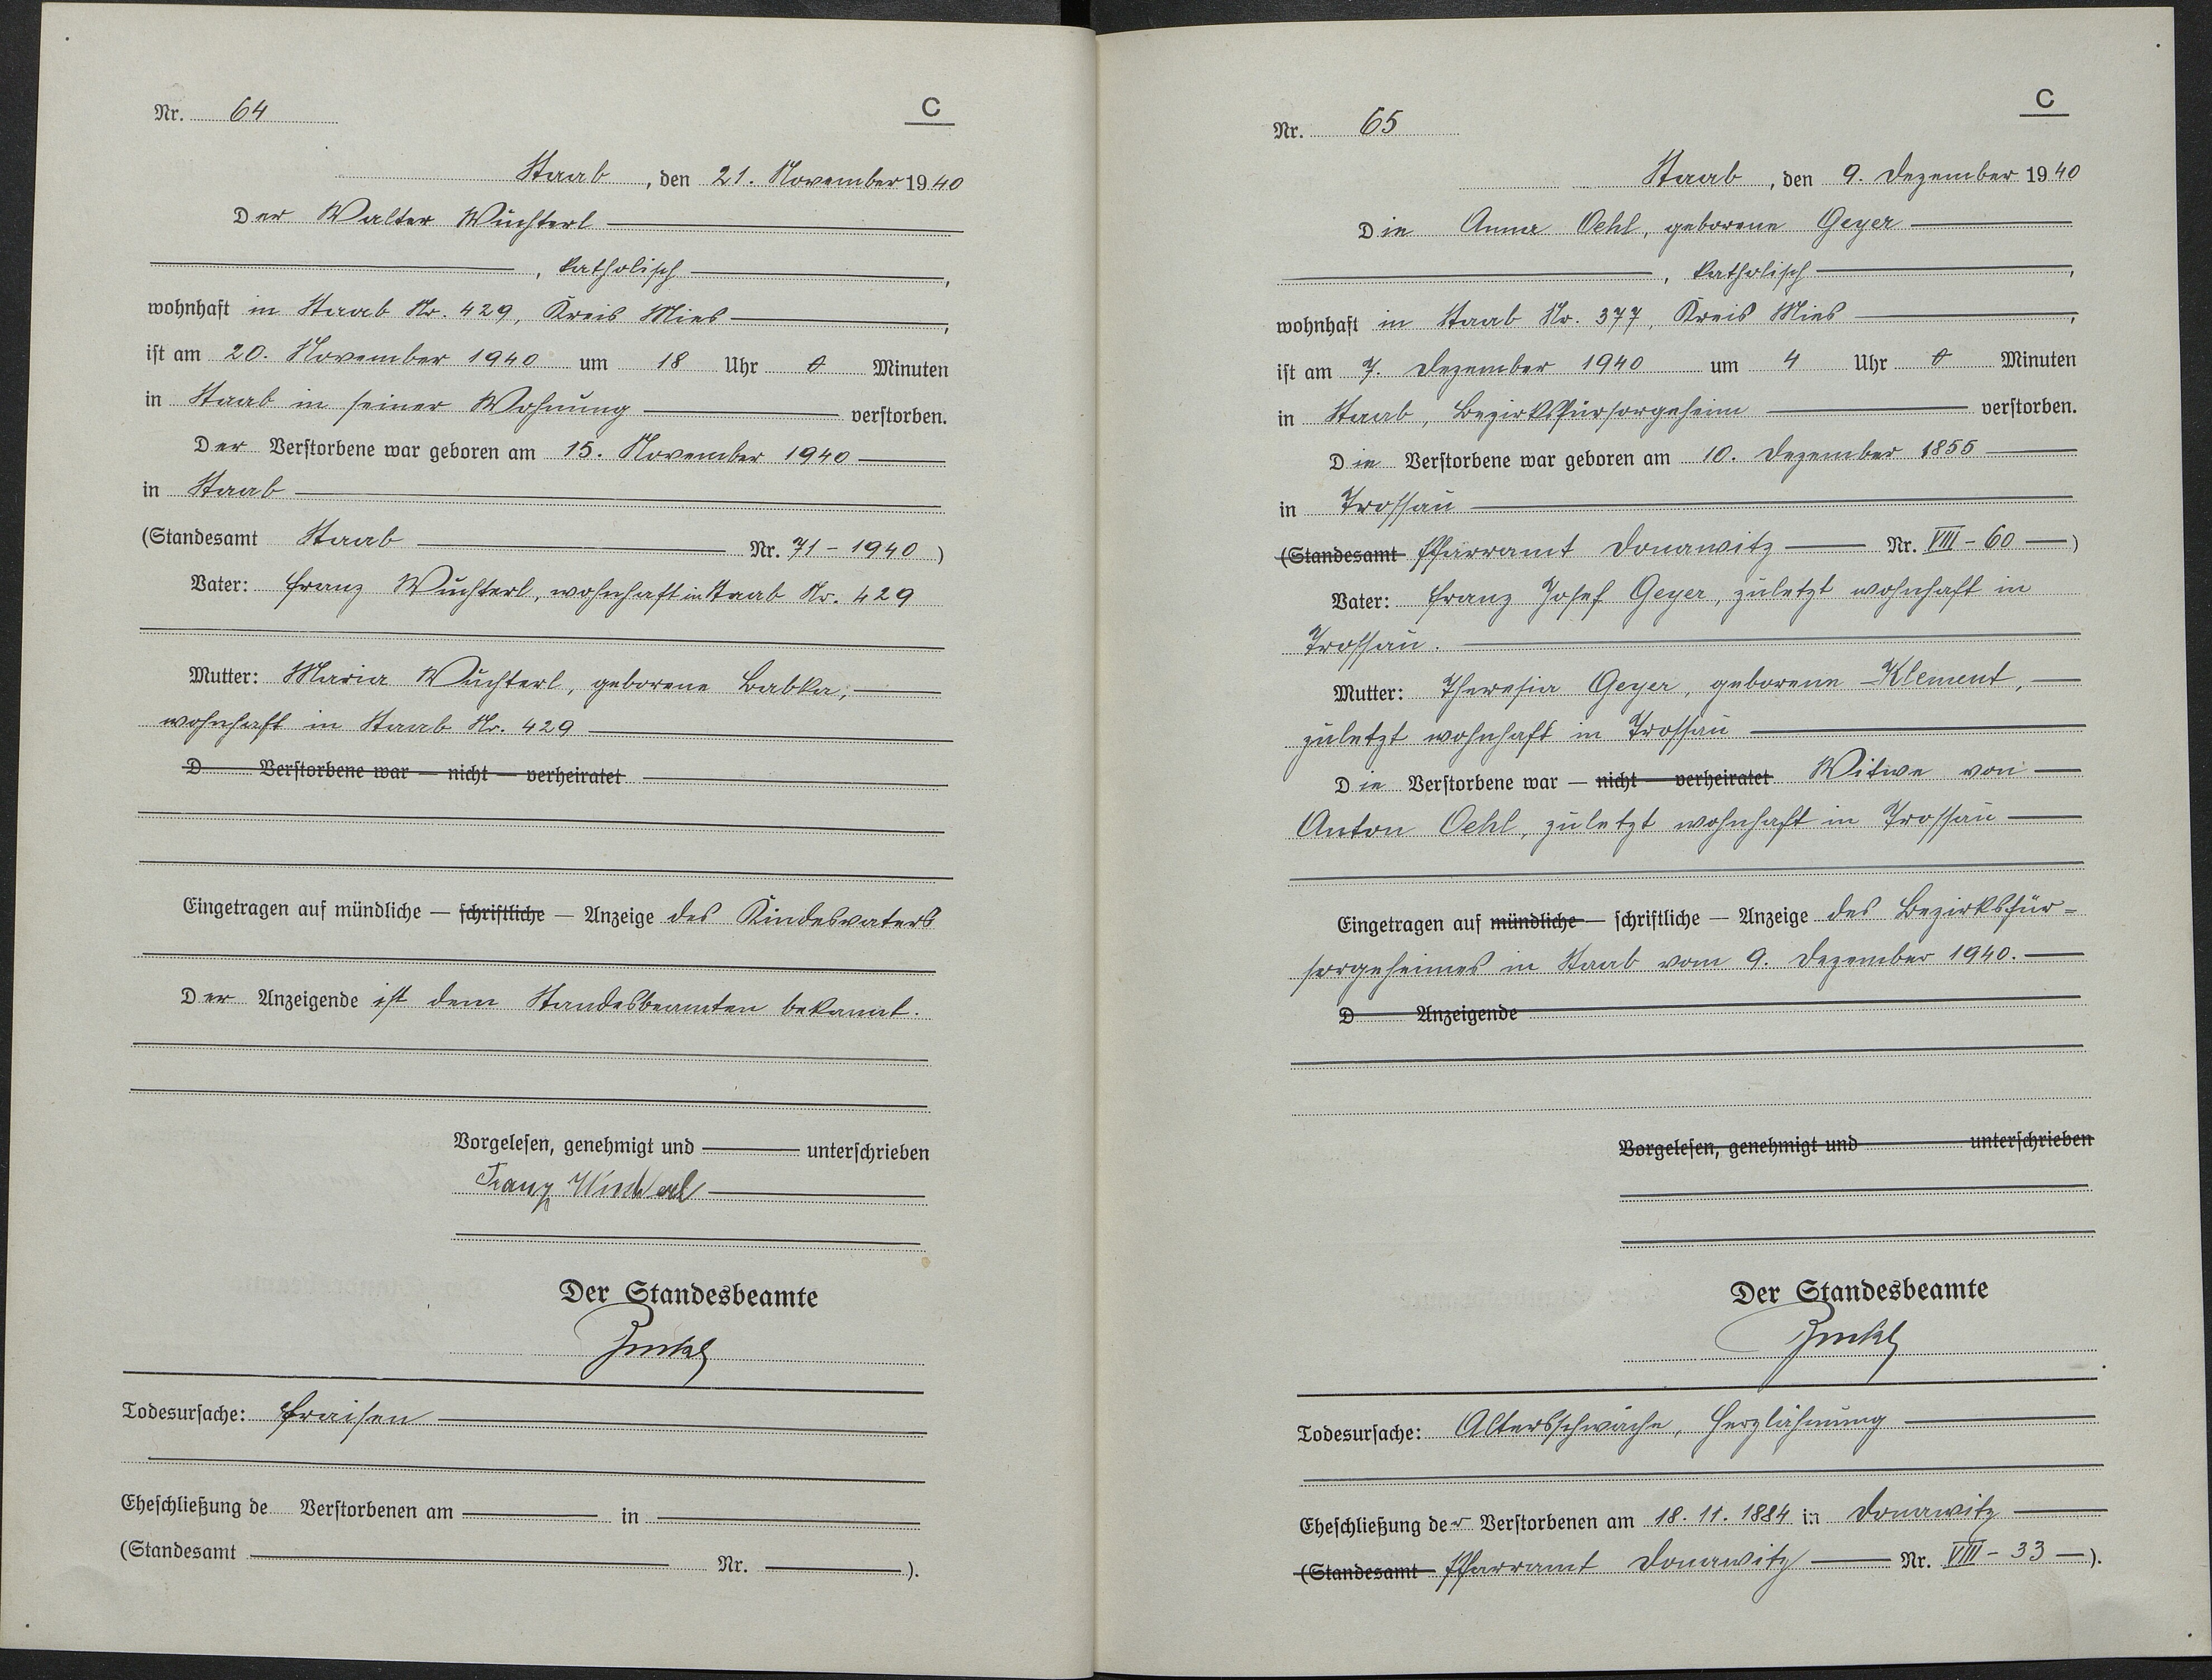 Nr. 64
C
Staab, den 21. November 1940
Der Walter Wuchterl
, katholisch,
wohnhaft in Staab Nr. 429, Kreis Mies,
ist am 20. November 1940 um 18 Uhr 0 Minuten
in Staab in seiner Wohnung verstorben.
Der Verstorbene war geboren am 15. November 1940
in Staab
(Standesamt Staab Nr. 71 - 1940)
Vater: Franz Wuchterl, wohnhaft in Staab Nr. 429
Mutter: Maria Wuchterl, geborene Babka,
wohnhaft in Staab Nr. 429
D Verstorbene war — nicht — verheiratet
Eingetragen auf mündliche — schriftliche — Anzeige des Kindesvaters
Der Anzeigende ist dem Standesbeamten bekannt.
Vorgelesen, genehmigt und unterschrieben
Franz Wuchterl
Der Standesbeamte
Todesursache: Fraisen
Eheschließung de Verstorbenen am in
(Standesamt Nr. ).
Nr. 65
C
Staab, den 9. Dezember 1940
Die Anna Oehl, geborene Geyer
, katholisch,
wohnhaft in Staab Nr. 377, Kreis Mies,
ist am 7. Dezember 1940 um 4 Uhr 0 Minuten
in Staab, Bezirksfürsorgeheim verstorben.
Die Verstorbene war geboren am 10. Dezember 1855
in Trossau
(Standesamt Pfarramt Donawitz Nr. VIII - 60)
Vater: Franz Josef Geyer, zuletzt wohnhaft in
Trossau.
Mutter: Theresia Geyer, geborene Klement,
zuletzt wohnhaft in Trossau
Die Verstorbene war — nicht — verheiratet Witwe von
Anton Oehl, zuletzt wohnhaft in Trossau
Eingetragen auf mündliche — schriftliche — Anzeige des Bezirksfür=
sorgeheimes in Staab vom 9. Dezember 1940.
D Anzeigende
Vorgelesen, genehmigt und unterschrieben
Der Standesbeamte
Todesursache: Altersschwäche, Herzlähmung
Eheschließung der Verstorbenen am 18. 11. 1884 in Donawitz
(Standesamt Pfarramt Donawitz Nr. VIII - 33).